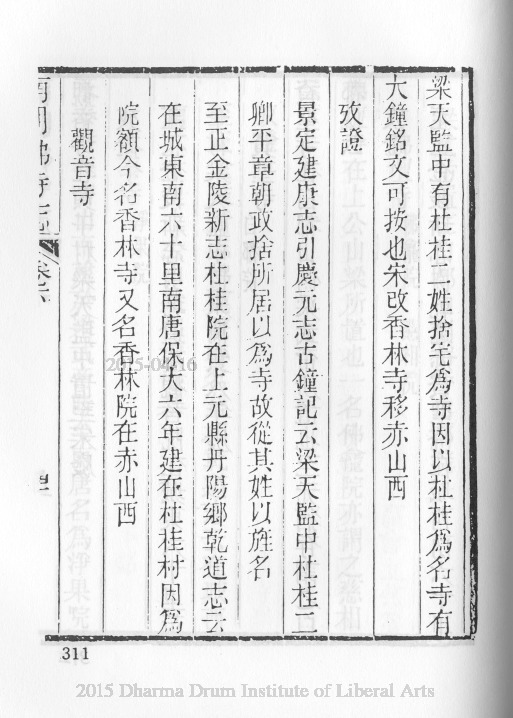 梁天監中有杜桂二姓捨宅為寺因以杜桂爲名寺有
大鐘銘文可按也宋改香林寺移赤山西
攷證
景定建康志引慶元志古鐘記云梁天監中杜桂二
卿平章朝政捨所居以爲寺故從其姓以旌名
至正金陵新志杜桂院在上元縣丹陽鄉乾道志云
在城東南六十里南唐保大六年建在杜桂村因爲
院額今名香林寺又名香林院在赤山西
觀音寺
南朝佛寺志 卷六
2015-04-16
311
2015 Dharma Drum Institute of Liberal Arts